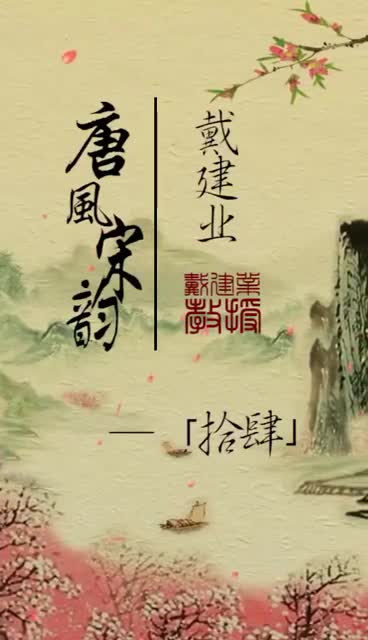 唐風宋韵
戴建业
戴建業
教授
—「拾肆」